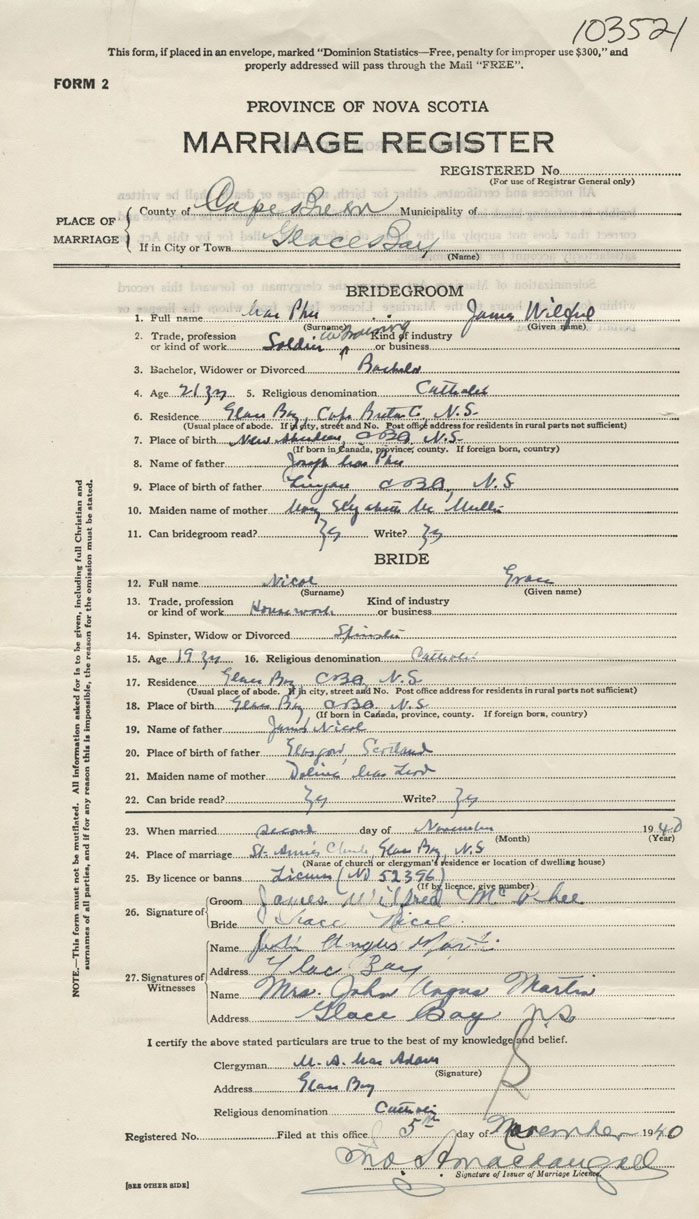 103521
This form, if placed in an envelope, marked "Dominion Statistics—Free, penalty for improper use $300," and
properly addressed will pass through the Mail "FREE".
FORM 2
PROVINCE OF NOVA SCOTIA
MARRIAGE REGISTER
REGISTERED No.
(For use of Registrar General only)
PLACE OF MARRIAGE
County of Cape Breton Municipality of
If in City or Town Glace Bay
(Name)
BRIDEGROOM
1. Full name Mac Phee James Wilfred
(Surname) (Given name)
2. Trade, profession or kind of work Soldier Kind of industry or business
3. Bachelor, Widower or Divorced Bachelor
4. Age 21 yrs 5. Religious denomination Catholic
6. Residence Glace Bay, Cape Breton Co, N.S.
(Usual place of abode. If in city, street and No. Post office address for residents in rural parts not sufficient)
7. Place of birth New Aberdeen, C.B. Co. N.S.
(If born in Canada, province, county. If foreign born, country)
8. Name of father Joseph Mac Phee
9. Place of birth of father Lingan C.B. Co, N.S
10. Maiden name of mother Mary Elizabeth Mc Mullin
11. Can bridegroom read? Yes Write? Yes
BRIDE
12. Full name Nicol Grace
(Surname) (Given name)
13. Trade, profession or kind of work Housework Kind of industry or business
14. Spinster, Widow or Divorced Spinster
15. Age 19 yrs 16. Religious denomination Catholic
17. Residence Glace Bay C.B. Co. N.S
(Usual place of abode. If in city, street and No. Post office address for residents in rural parts not sufficient)
18. Place of birth Glace Bay C.B. Co. N.S
(If born in Canada, province, county. If foreign born, country)
19. Name of father James Nicol
20. Place of birth of father Glasgow, Scotland
21. Maiden name of mother Mac Leod
22. Can bride read? Yes Write? Yes
23. When married second day of November 1940
(Month) (Year)
24. Place of marriage St. Anne's Church, Glace Bay, N.S
(Name of church or clergyman's residence or location of dwelling house)
25. By licence or banns License (No 52396)
(If by licence, give number)
26. Signature of
Groom James Wilfred McPhee
Bride Grace Nicol
27. Signatures of Witnesses
Name John Angus Martin
Address Glace Bay
Name Mrs. John Angus Martin
Address Glace Bay N.S
I certify the above stated particulars are true to the best of my knowledge and belief.
Clergyman M. A. Mac Adam
(Signature)
Address Glace Bay
Religious denomination Catholic
Registered No. Filed at this office 5th day of November 1940
MacDougall
Signature of Issuer of Marriage Licence
[SEE OTHER SIDE]
NOTE.—This form must not be mutilated. All information asked for is to be given, including full Christian and
surnames of all parties, and if for any reason this is impossible, the reason for the omission must be stated.